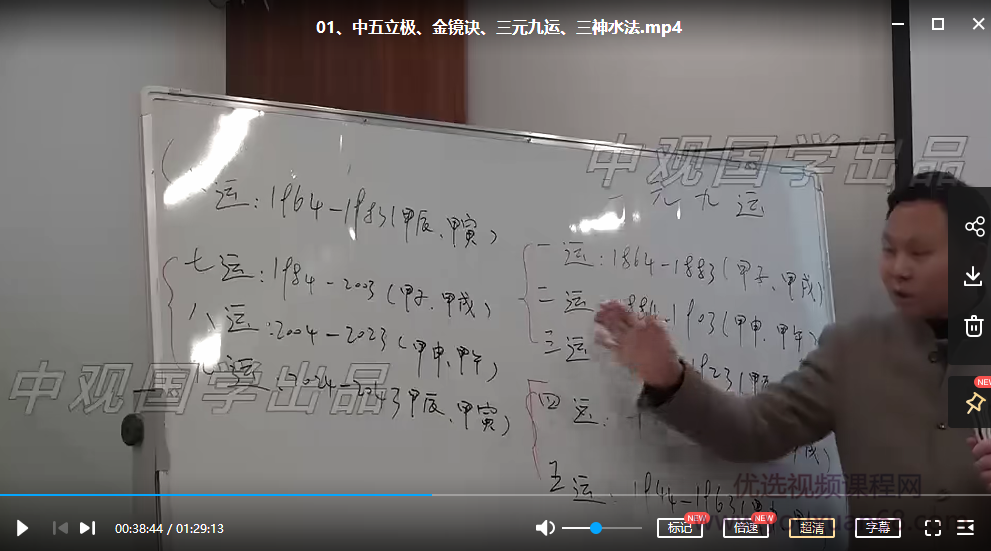 01、中五立极、金镜诀、三元九运、三神水法.mp4
中观国学出品
元九运
运：1964-1983(甲辰、甲寅)
七运：1984-2003(甲子、甲戌)
八运：2004-2023(甲申、甲午)
运：2024-2043甲辰、甲寅)
一运：1864-1883(甲子、甲戌)
二运 1903(甲申、甲午)
三运 1923(甲
四运：
五运：1944-1963(甲
中观国学出品
优选视频课程网
NEW
00:38:44 / 01:29:13
标记
NEW
倍速
NEW
超清
字幕